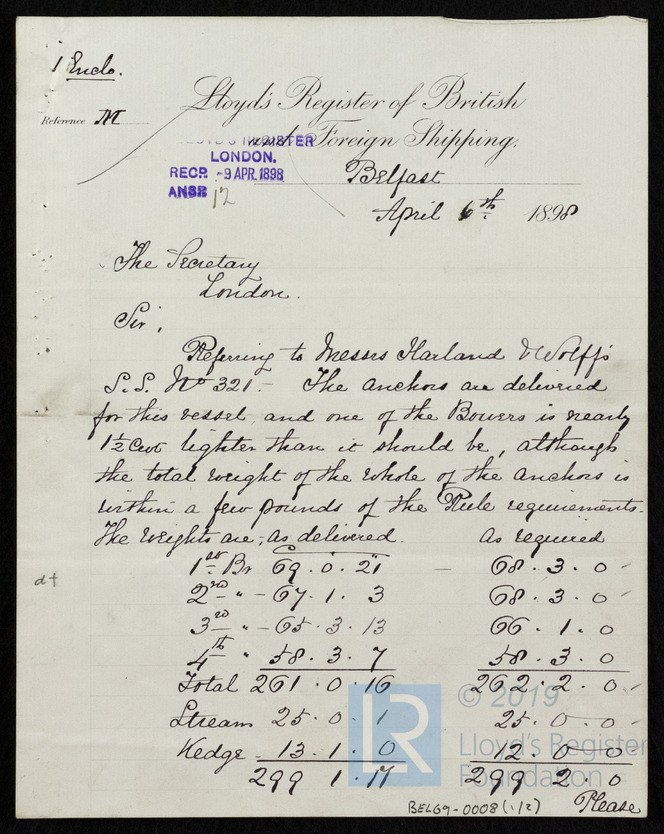 1 Enclo.
Reference M
Lloyd's Register of British
and Foreign Shipping.
LLOYD'S REGISTER
LONDON.
RECD -9 APR. 1898
ANSD 12
Belfast
April 6th 1898
The Secretary
London.
Sir,
Referring to Messrs Harland & Wolff's
S.S. No 321.- The anchors are delivered
for this vessel, and one of the Bowers is nearly
1½ Cwt lighter than it should be, although
the total weight of the whole of the anchors is
within a few pounds of the Rule requirements.
The weights are; as delivered. as required
1st Br 69.0.21 — 68.3.0
2nd " - 67.1.3 68.3.0
3rd " - 65.3.13 66.1.0
4th " 58.3.7 58.3.0
Total 261.0.16 262.2.0
Stream 25.0.1 25.0.0
Kedge 13.1.0 12.0.0
299 1.17 299 2.0
Please
BEL69-0008(1/2)
LR
© 2019
Lloyd's Register
Foundation